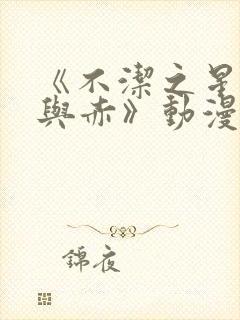 《不潔之星
與赤》動漫
錦夜